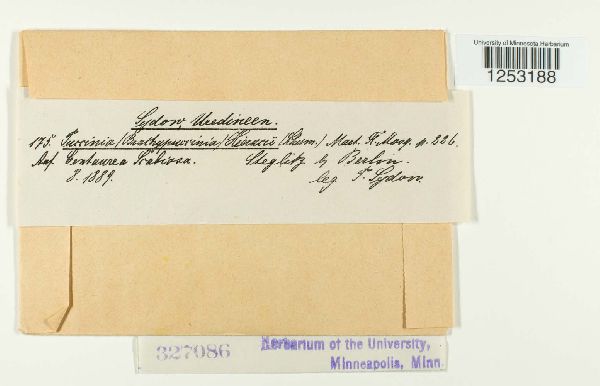 University of Minnesota Herbarium
1253188
Sydow, Uredineen.
175. Puccinia (Brachypuccinia) Hieracii (Schum.) Mart. Fl. Mosq. p. 226.
Auf Centaurea Scabiosa. Steglitz b/ Berlin.
8. 1889. leg. P. Sydow.
327086
Herbarium of the University,
Minneapolis, Minn.